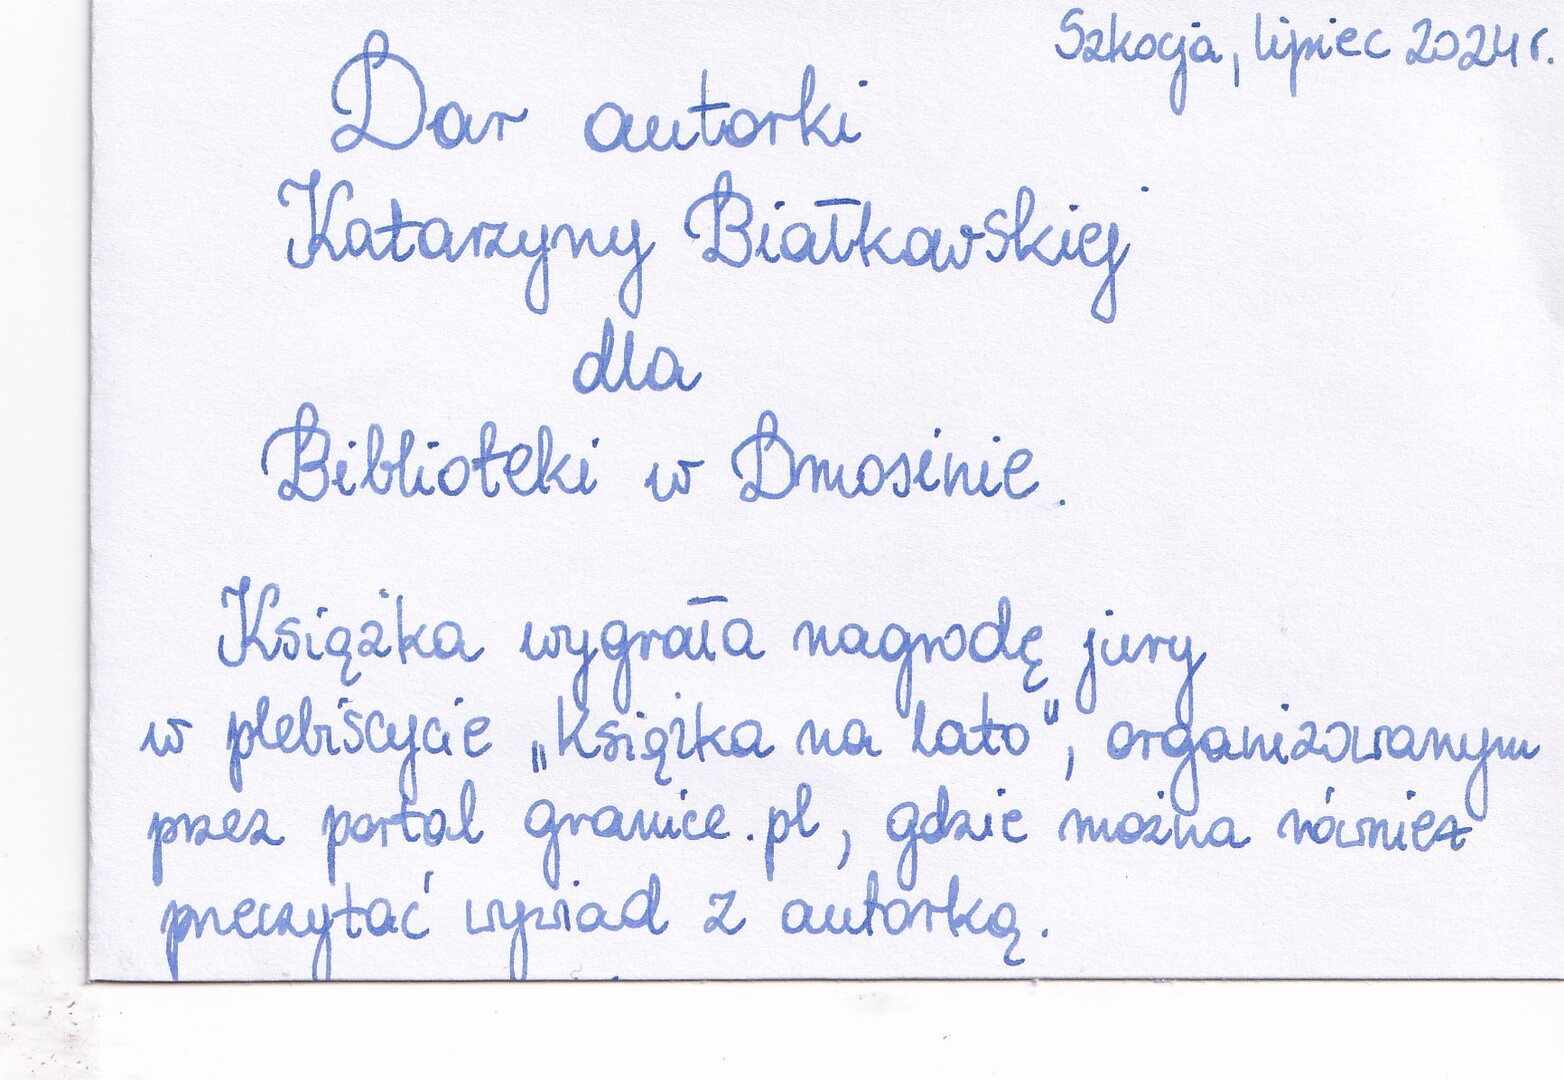 Szkocja, lipiec 2024 r.
Dar autorki
Katarzyny Białkowskiej
dla
Biblioteki w Dmosinie.
Książka wygrała nagrodę jury
w plebiscycie „Książka na lato", organizowanym
przez portal granice.pl, gdzie można również
przeczytać wywiad z autorką.